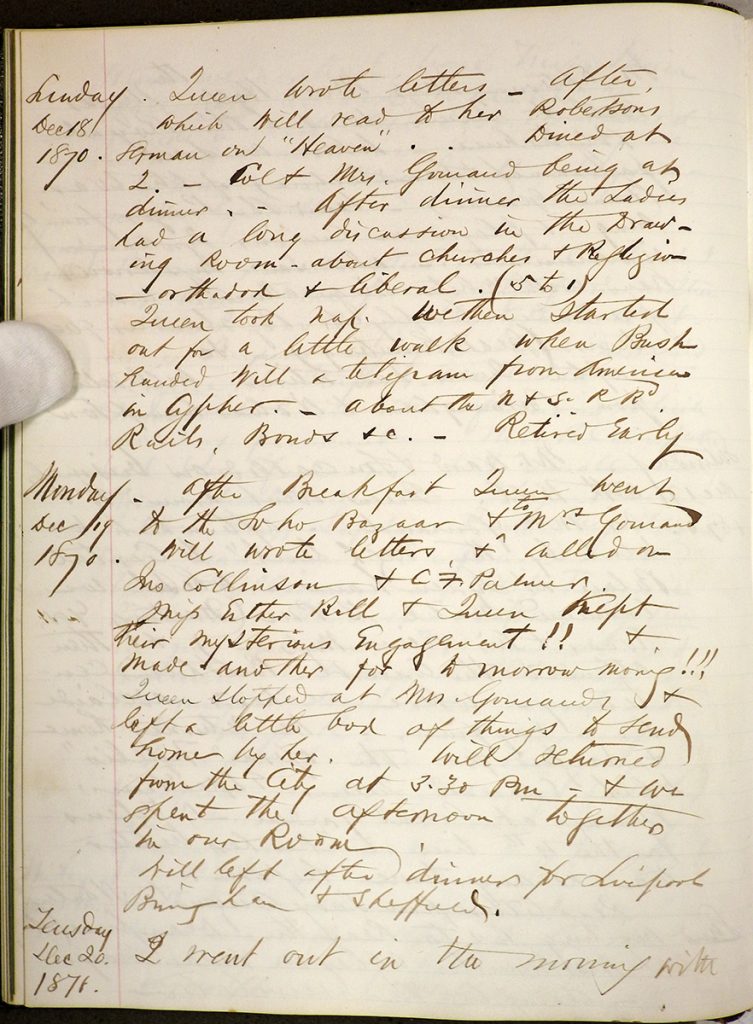 Sunday . Queen wrote letters – After,
Dec 18 which Will read to her Robertsons
1870. Serman on "Heaven" . . Dined at
2. – Col & Mrs. Gouraud being at
dinner. – After dinner the Ladies
had a long discussion in the Draw-
ing Room – about churches & Religion
– orthadox & liberal. (5 to 1)
Queen took nap. We then started
out for a little walk when Bush
handed Will a telegram from America
in Cypher. – about the N & S. R Rd
Rails, Bonds &c. – Retired Early
Monday – After Breakfast Queen went
Dec 19 to the Soho Bazaar & to Mrs Gouraud
1870. Will wrote letters & called on
Jno Collinson & C F Palmer.
Miss Esther Bell & Queen kept
their mysterious Engagement!! &
made another for tomorrow mornig!!!
Queen stopped at Mrs. Gourauds &
left a little box of things to send
home by her. Will returned
from the City at 3.30 Pm – & we
spent the afternoon together
in our Room.
Will left after dinner for Liverpool
& Sheffield.
Tuesday
Dec 20. I went out in the morning with
1870.